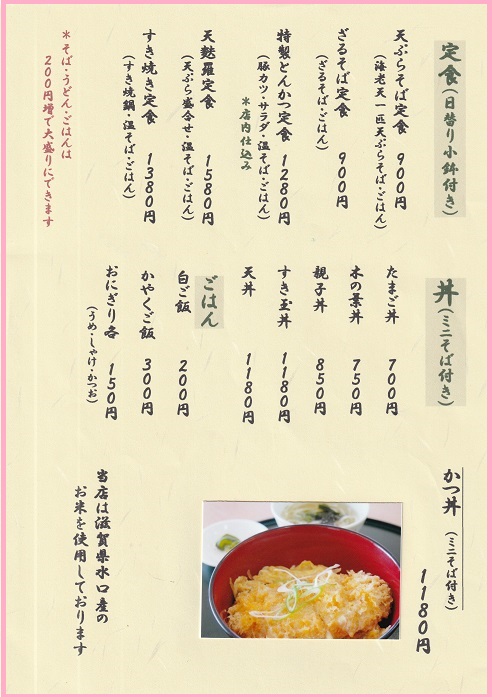 定食(日替り小鉢付き)
天ぷらそば定食 900円
(海老天一匹天ぷらそば・ごはん)
ざるそば定食 900円
(ざるそば・ごはん)
特製とんかつ定食 1280円
(豚カツ・サラダ・温そば・ごはん)
*店内仕込み
天麩羅定食 1580円
(天ぷら盛合せ・温そば・ごはん)
すき焼き定食 1380円
(すき焼鍋・温そば・ごはん)
*そば・うどん・ごはんは
200円増で大盛りにできます
丼(ミニそば付き)
たまご丼 700円
木の葉丼 750円
親子丼 850円
すき玉丼 1180円
天丼 1180円
ごはん
白ご飯 200円
かやくご飯 300円
おにぎり各 150円
(うめ・しゃけ・かつお)
かつ丼 (ミニそば付き)
1180円
当店は滋賀県水口産の
お米を使用しております